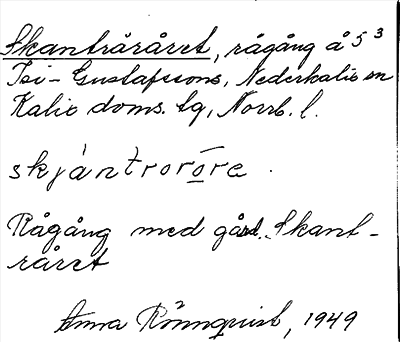 Skantråråret, rågång å 5³
Isi-Gustafssons, Nederkalix sn
Kalix doms. tg, Norrb. l.
skjàntroråre.
Rågång med gård. Skant-
råret
Anna Rönnquist, 1949